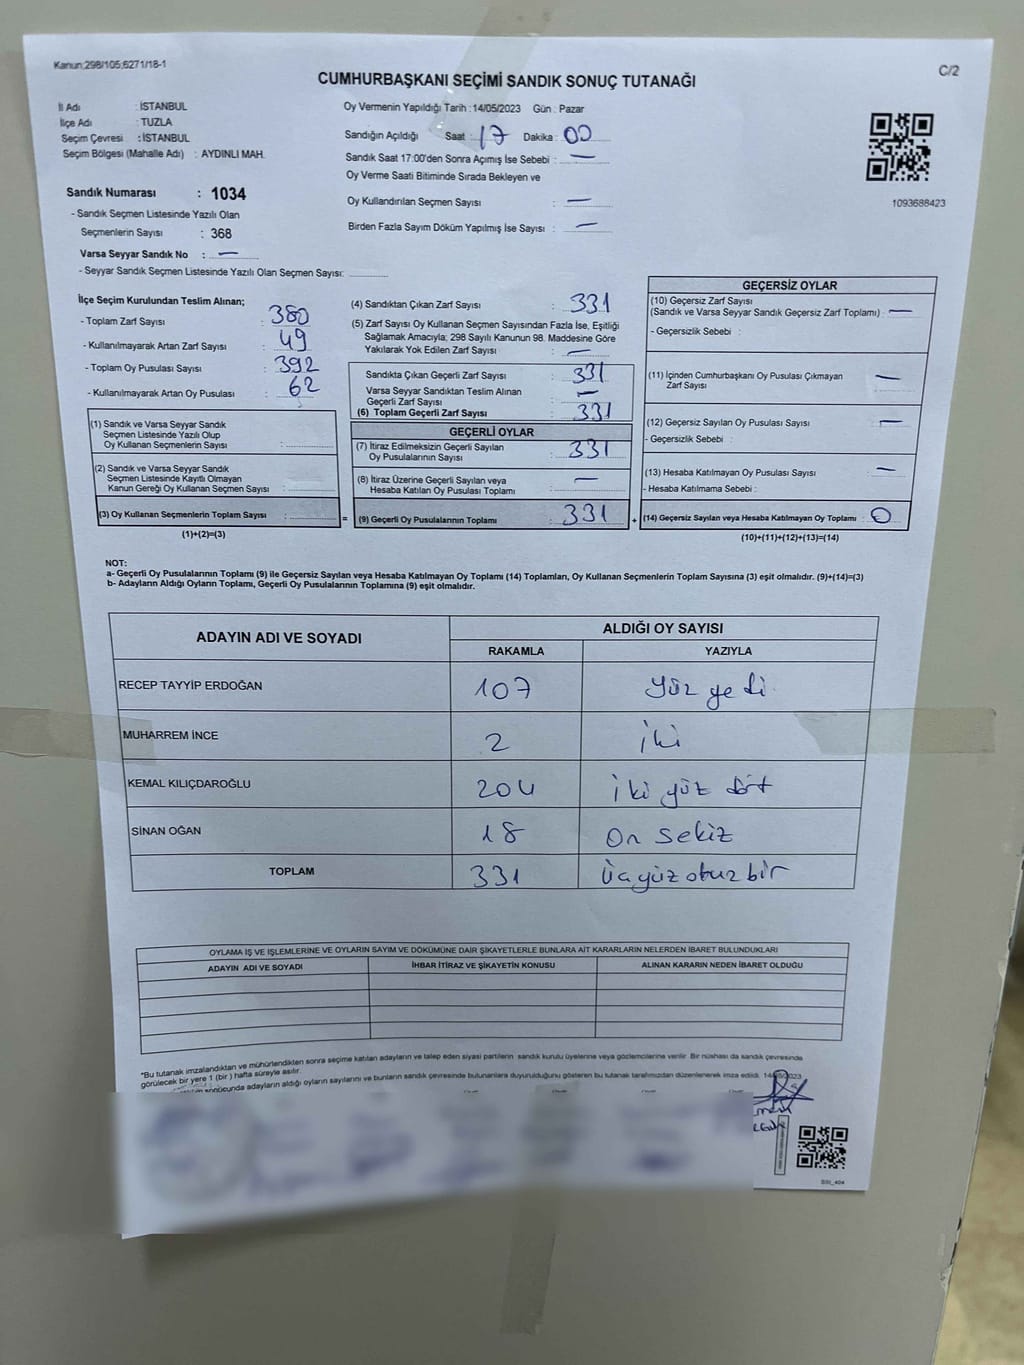 Kanun;298/105;6271/18-1
C/2
CUMHURBAŞKANI SEÇİMİ SANDIK SONUÇ TUTANAĞI
İl Adı : İSTANBUL
İlçe Adı : TUZLA
Seçim Çevresi : İSTANBUL
Seçim Bölgesi (Mahalle Adı) : AYDINLI MAH.
Oy Vermenin Yapıldığı Tarih : 14/05/2023 Gün : Pazar
Sandığın Açıldığı Saat : 17 Dakika : 00
Sandık Saat 17:00'den Sonra Açımış İse Sebebi : —
Oy Verme Saati Bitiminde Sırada Bekleyen ve
Oy Kullandırılan Seçmen Sayısı : —
Birden Fazla Sayım Döküm Yapılmış İse Sayısı : —
1093688423
Sandık Numarası : 1034
- Sandık Seçmen Listesinde Yazılı Olan
Seçmenlerin Sayısı : 368
Varsa Seyyar Sandık No : —
- Seyyar Sandık Seçmen Listesinde Yazılı Olan Seçmen Sayısı:
İlçe Seçim Kurulundan Teslim Alınan;
- Toplam Zarf Sayısı : 380
- Kullanılmayarak Artan Zarf Sayısı : 49
- Toplam Oy Pusulası Sayısı : 392
- Kullanılmayarak Artan Oy Pusulası : 62
(1) Sandık ve Varsa Seyyar Sandık
Seçmen Listesinde Yazılı Olup
Oy Kullanan Seçmenlerin Sayısı :
(2) Sandık ve Varsa Seyyar Sandık
Seçmen Listesinde Kayıtlı Olmayan
Kanun Gereği Oy Kullanan Seçmen Sayısı :
(3) Oy Kullanan Seçmenlerin Toplam Sayısı :
(1)+(2)=(3)
=
(4) Sandıktan Çıkan Zarf Sayısı : 331
(5) Zarf Sayısı Oy Kullanan Seçmen Sayısından Fazla İse, Eşitliği
Sağlamak Amacıyla; 298 Sayılı Kanunun 98. Maddesine Göre
Yakılarak Yok Edilen Zarf Sayısı : —
Sandıkta Çıkan Geçerli Zarf Sayısı : 331
Varsa Seyyar Sandıktan Teslim Alınan
Geçerli Zarf Sayısı : —
(6) Toplam Geçerli Zarf Sayısı : 331
GEÇERLİ OYLAR
(7) İtiraz Edilmeksizin Geçerli Sayılan
Oy Pusulalarının Sayısı : 331
(8) İtiraz Üzerine Geçerli Sayılan veya
Hesaba Katılan Oy Pusulası Toplamı : —
(9) Geçerli Oy Pusulalarının Toplamı : 331
+
GEÇERSİZ OYLAR
(10) Geçersiz Zarf Sayısı
(Sandık ve Varsa Seyyar Sandık Geçersiz Zarf Toplamı) : —
- Geçersizlik Sebebi :
(11) İçinden Cumhurbaşkanı Oy Pusulası Çıkmayan
Zarf Sayısı : —
(12) Geçersiz Sayılan Oy Pusulası Sayısı : —
- Geçersizlik Sebebi :
(13) Hesaba Katılmayan Oy Pusulası Sayısı : —
- Hesaba Katılmama Sebebi :
(14) Geçersiz Sayılan veya Hesaba Katılmayan Oy Toplamı : 0
(10)+(11)+(12)+(13)=(14)
NOT:
a- Geçerli Oy Pusulalarının Toplamı (9) ile Geçersiz Sayılan veya Hesaba Katılmayan Oy Toplamı (14) Toplamları, Oy Kullanan Seçmenlerin Toplam Sayısına (3) eşit olmalıdır. (9)+(14)=(3)
b- Adayların Aldığı Oyların Toplamı, Geçerli Oy Pusulalarının Toplamına (9) eşit olmalıdır.
ADAYIN ADI VE SOYADI
ALDIĞI OY SAYISI
RAKAMLA YAZIYLA
RECEP TAYYİP ERDOĞAN 107 Yüz yedi
MUHARREM İNCE 2 iki
KEMAL KILIÇDAROĞLU 204 iki yüz dört
SİNAN OĞAN 18 On sekiz
TOPLAM 331 Üçyüz otuz bir
OYLAMA İŞ VE İŞLEMLERİNE VE OYLARIN SAYIM VE DÖKÜMÜNE DAİR ŞİKAYETLERLE BUNLARA AİT KARARLARIN NELERDEN İBARET BULUNDUKLARI
ADAYIN ADI VE SOYADI İHBAR İTİRAZ VE ŞİKAYETİN KONUSU ALINAN KARARIN NEDEN İBARET OLDUĞU
*Bu tutanak imzalandıktan ve mühürlendikten sonra seçime katılan adayların ve talep eden siyasi partilerin sandık kurulu üyelerine veya gözlemcilerine verilir. Bir nüshası da sandık çevresinde
görülecek bir yere 1 (bir ) hafta süreyle asılır.
sonucunda adayların aldığı oyların sayılarını ve bunların sandık çevresinde bulunanlara duyurulduğunu gösteren bu tutanak tarafımızdan düzenlenerek imza edildi.